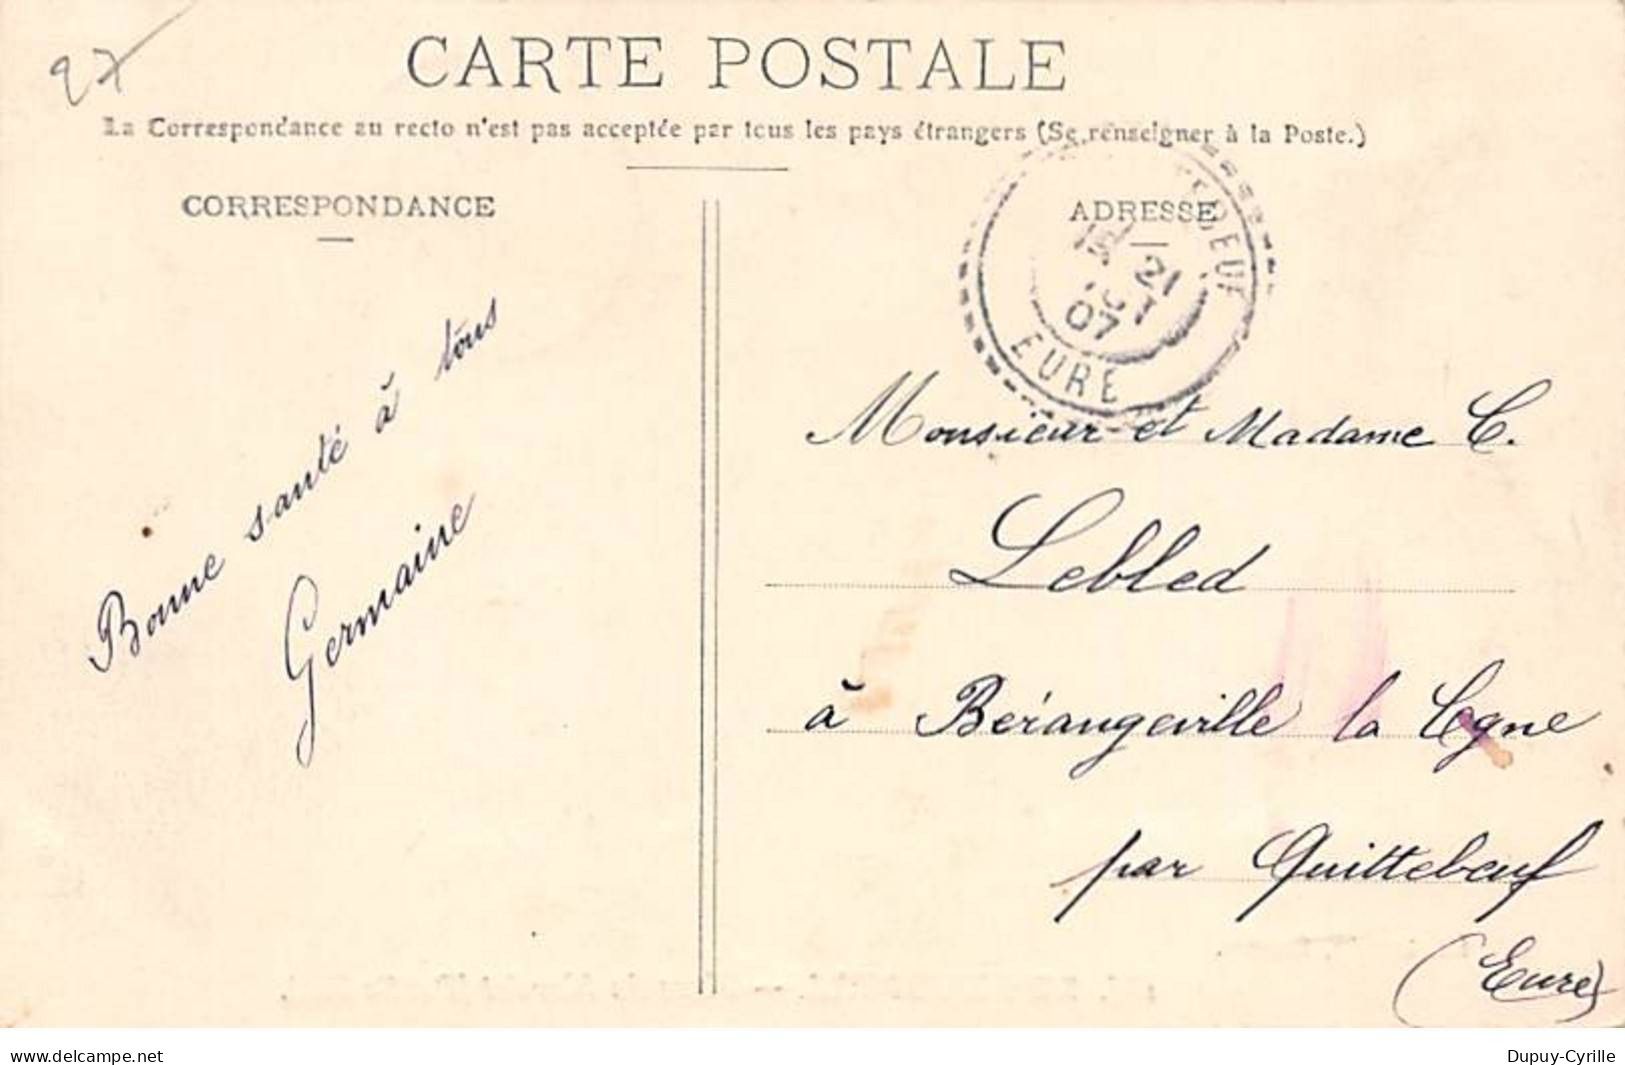 27
CARTE POSTALE
La Correspondance au recto n'est pas acceptée par tous les pays étrangers (Se renseigner à la Poste.)
CORRESPONDANCE
ADRESSE
21
07
EURE
Bonne santé à tous
Germaine
Monsieur et Madame C.
Lebled
à Bérangeville la
par Quittebeuf
(Eure)
www.delcampe.net
Dupuy-Cyrille